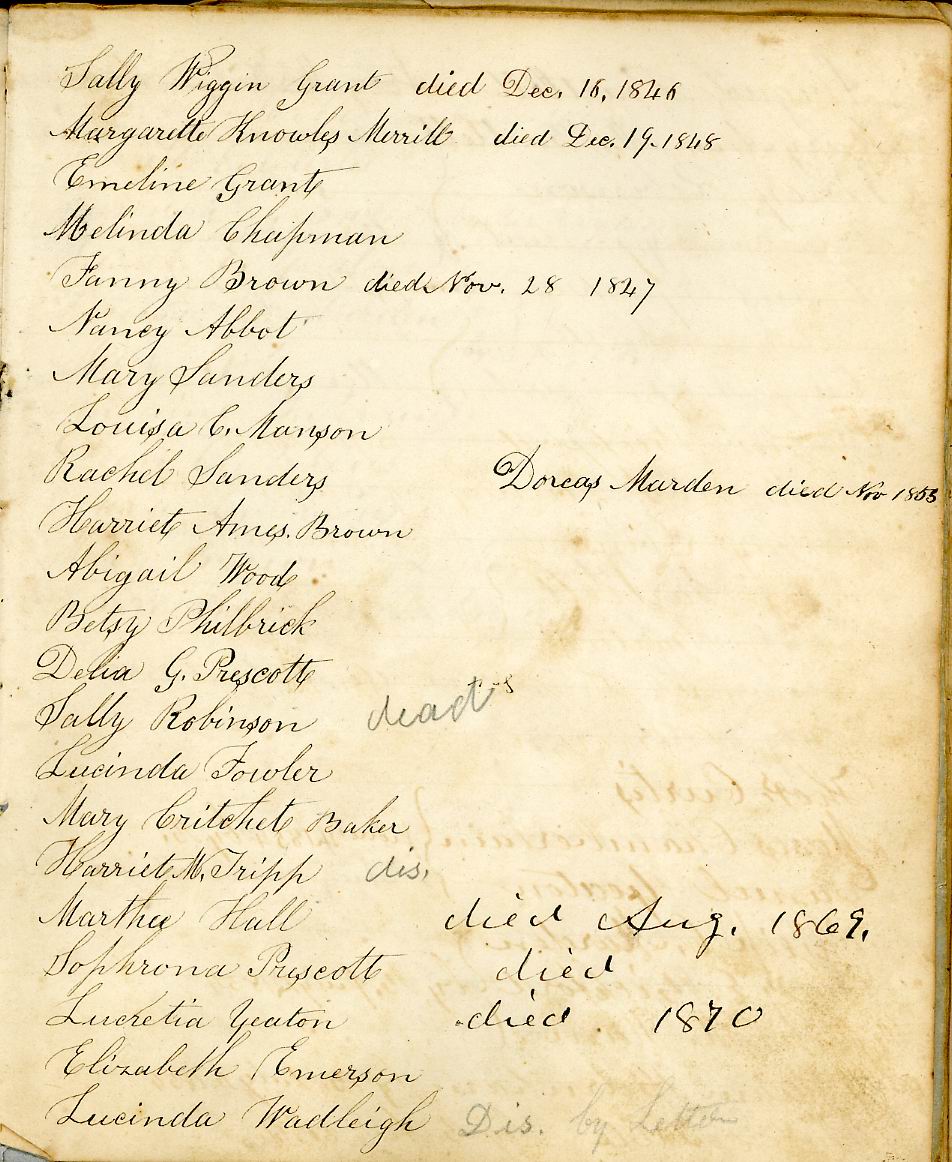 Sally Wiggin Grant died Dec. 16, 1846
Margarette Knowles Merrill died Dec. 19. 1848
Emeline Grant
Melinda Chapman
Fanny Brown died Nov. 28 1847
Nancy Abbot
Mary Sanders
Louisa C. Manson
Rachel Sanders Dorcas Marden died Nov 1853
Harriet Ames. Brown
Abigail Wood
Betsy Philbrick
Delia G. Prescott
Sally Robinson dead
Lucinda Fowler
Mary Critchet Baker
Harriet M. Tripp dis.
Martha Hall died Aug. 1869.
Sophrona Prescott died
Lucretia Yeaton died 1870
Elizabeth Emerson
Lucinda Wadleigh Dis. by Letter